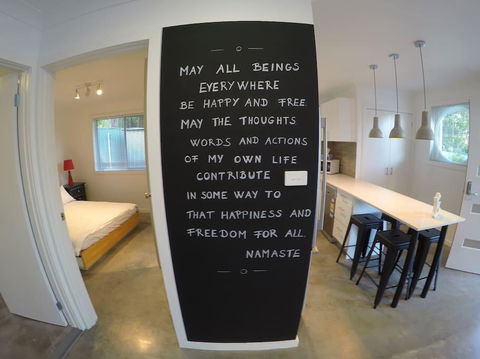 MAY ALL BEINGS
EVERYWHERE
BE HAPPY AND FREE
MAY THE THOUGHTS
WORDS AND ACTIONS
OF MY OWN LIFE
CONTRIBUTE
IN SOME WAY TO
THAT HAPPINESS AND
FREEDOM FOR ALL.
NAMASTE